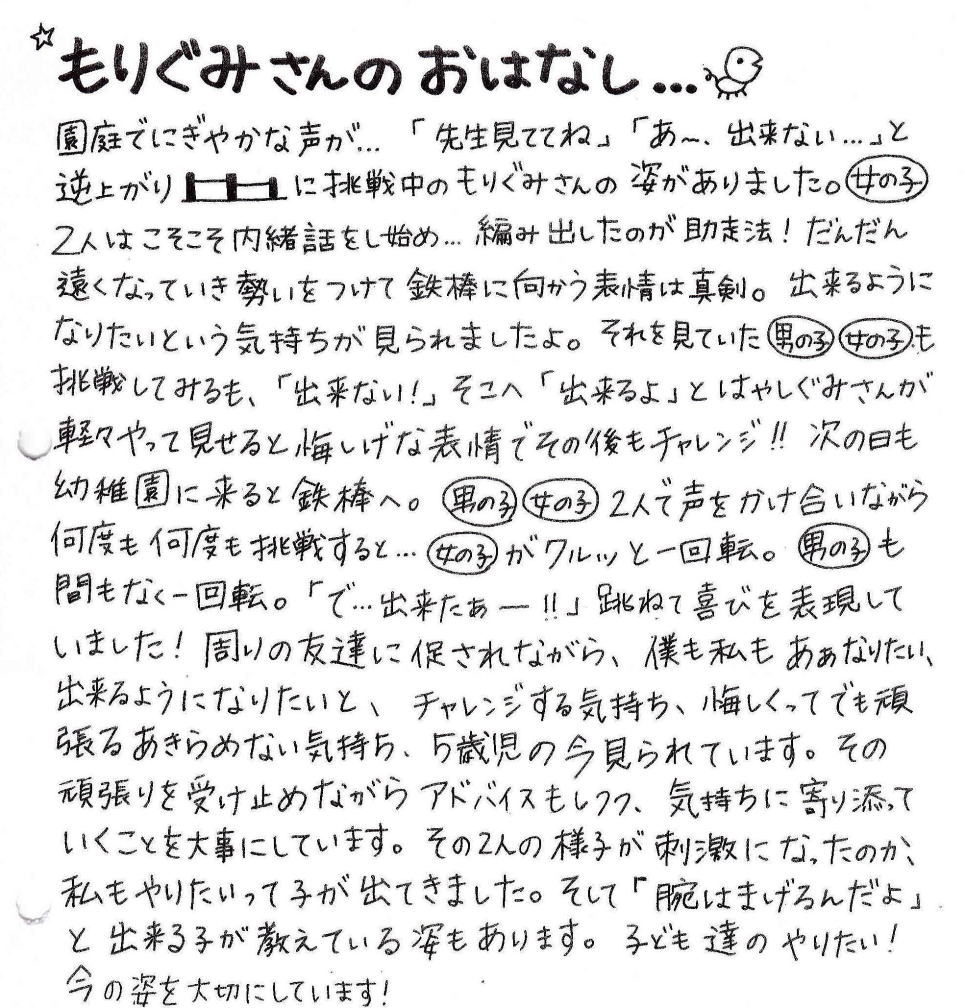 ☆もりぐみさんのおはなし…
園庭でにぎやかな声が…「先生見ててね」「あ〜、出来ない…」と
逆上がり に挑戦中のもりぐみさんの姿がありました。女の子
2人はこそこそ内緒話をし始め…編み出したのが助走法！だんだん
遠くなっていき勢いをつけて鉄棒に向かう表情は真剣。出来るように
なりたいという気持ちが見られましたよ。それを見ていた男の子女の子も
挑戦してみるも、「出来ない！」そこへ「出来るよ」とはやしぐみさんが
軽々やって見せると悔しげな表情でその後もチャレンジ!!次の日も
幼稚園に来ると鉄棒へ。男の子女の子2人で声をかけ合いながら
何度も何度も挑戦すると…女の子がクルッと一回転。男の子も
間もなく一回転。「で…出来たぁー!!」跳ねて喜びを表現して
いました！周りの友達に促されながら、僕も私もあぁなりたい、
出来るようになりたいと、チャレンジする気持ち、悔しくってでも頑
張るあきらめない気持ち、5歳児の今見られています。その
頑張りを受け止めながらアドバイスもしつつ、気持ちに寄り添って
いくことを大事にしています。その2人の様子が刺激になったのか、
私もやりたいって子が出てきました。そして「腕はまげるんだよ」
と出来る子が教えている姿もあります。子ども達のやりたい！
今の姿を大切にしています！